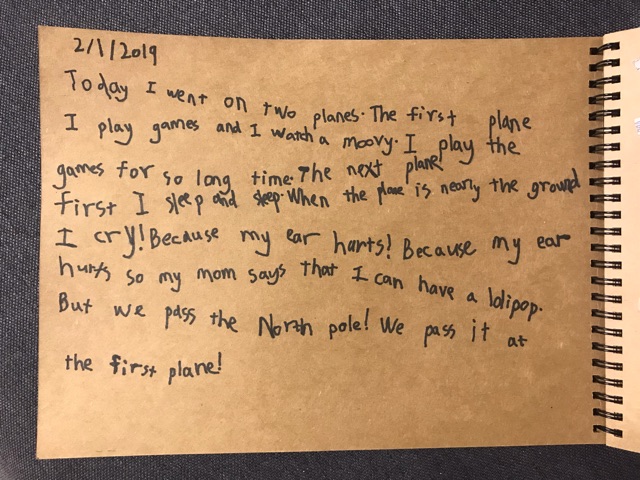 2/1/2019
Today I went on two planes. The first plane
I play games and I watch a moovy. I play the
games for so long time. The next plane
first I sleep and sleep. When the plane is nearly the ground
I cry! Because my ear harts! Because my ear
hurts so my mom says that I can have a lolipop.
But we pass the North pole! We pass it at
the first plane!